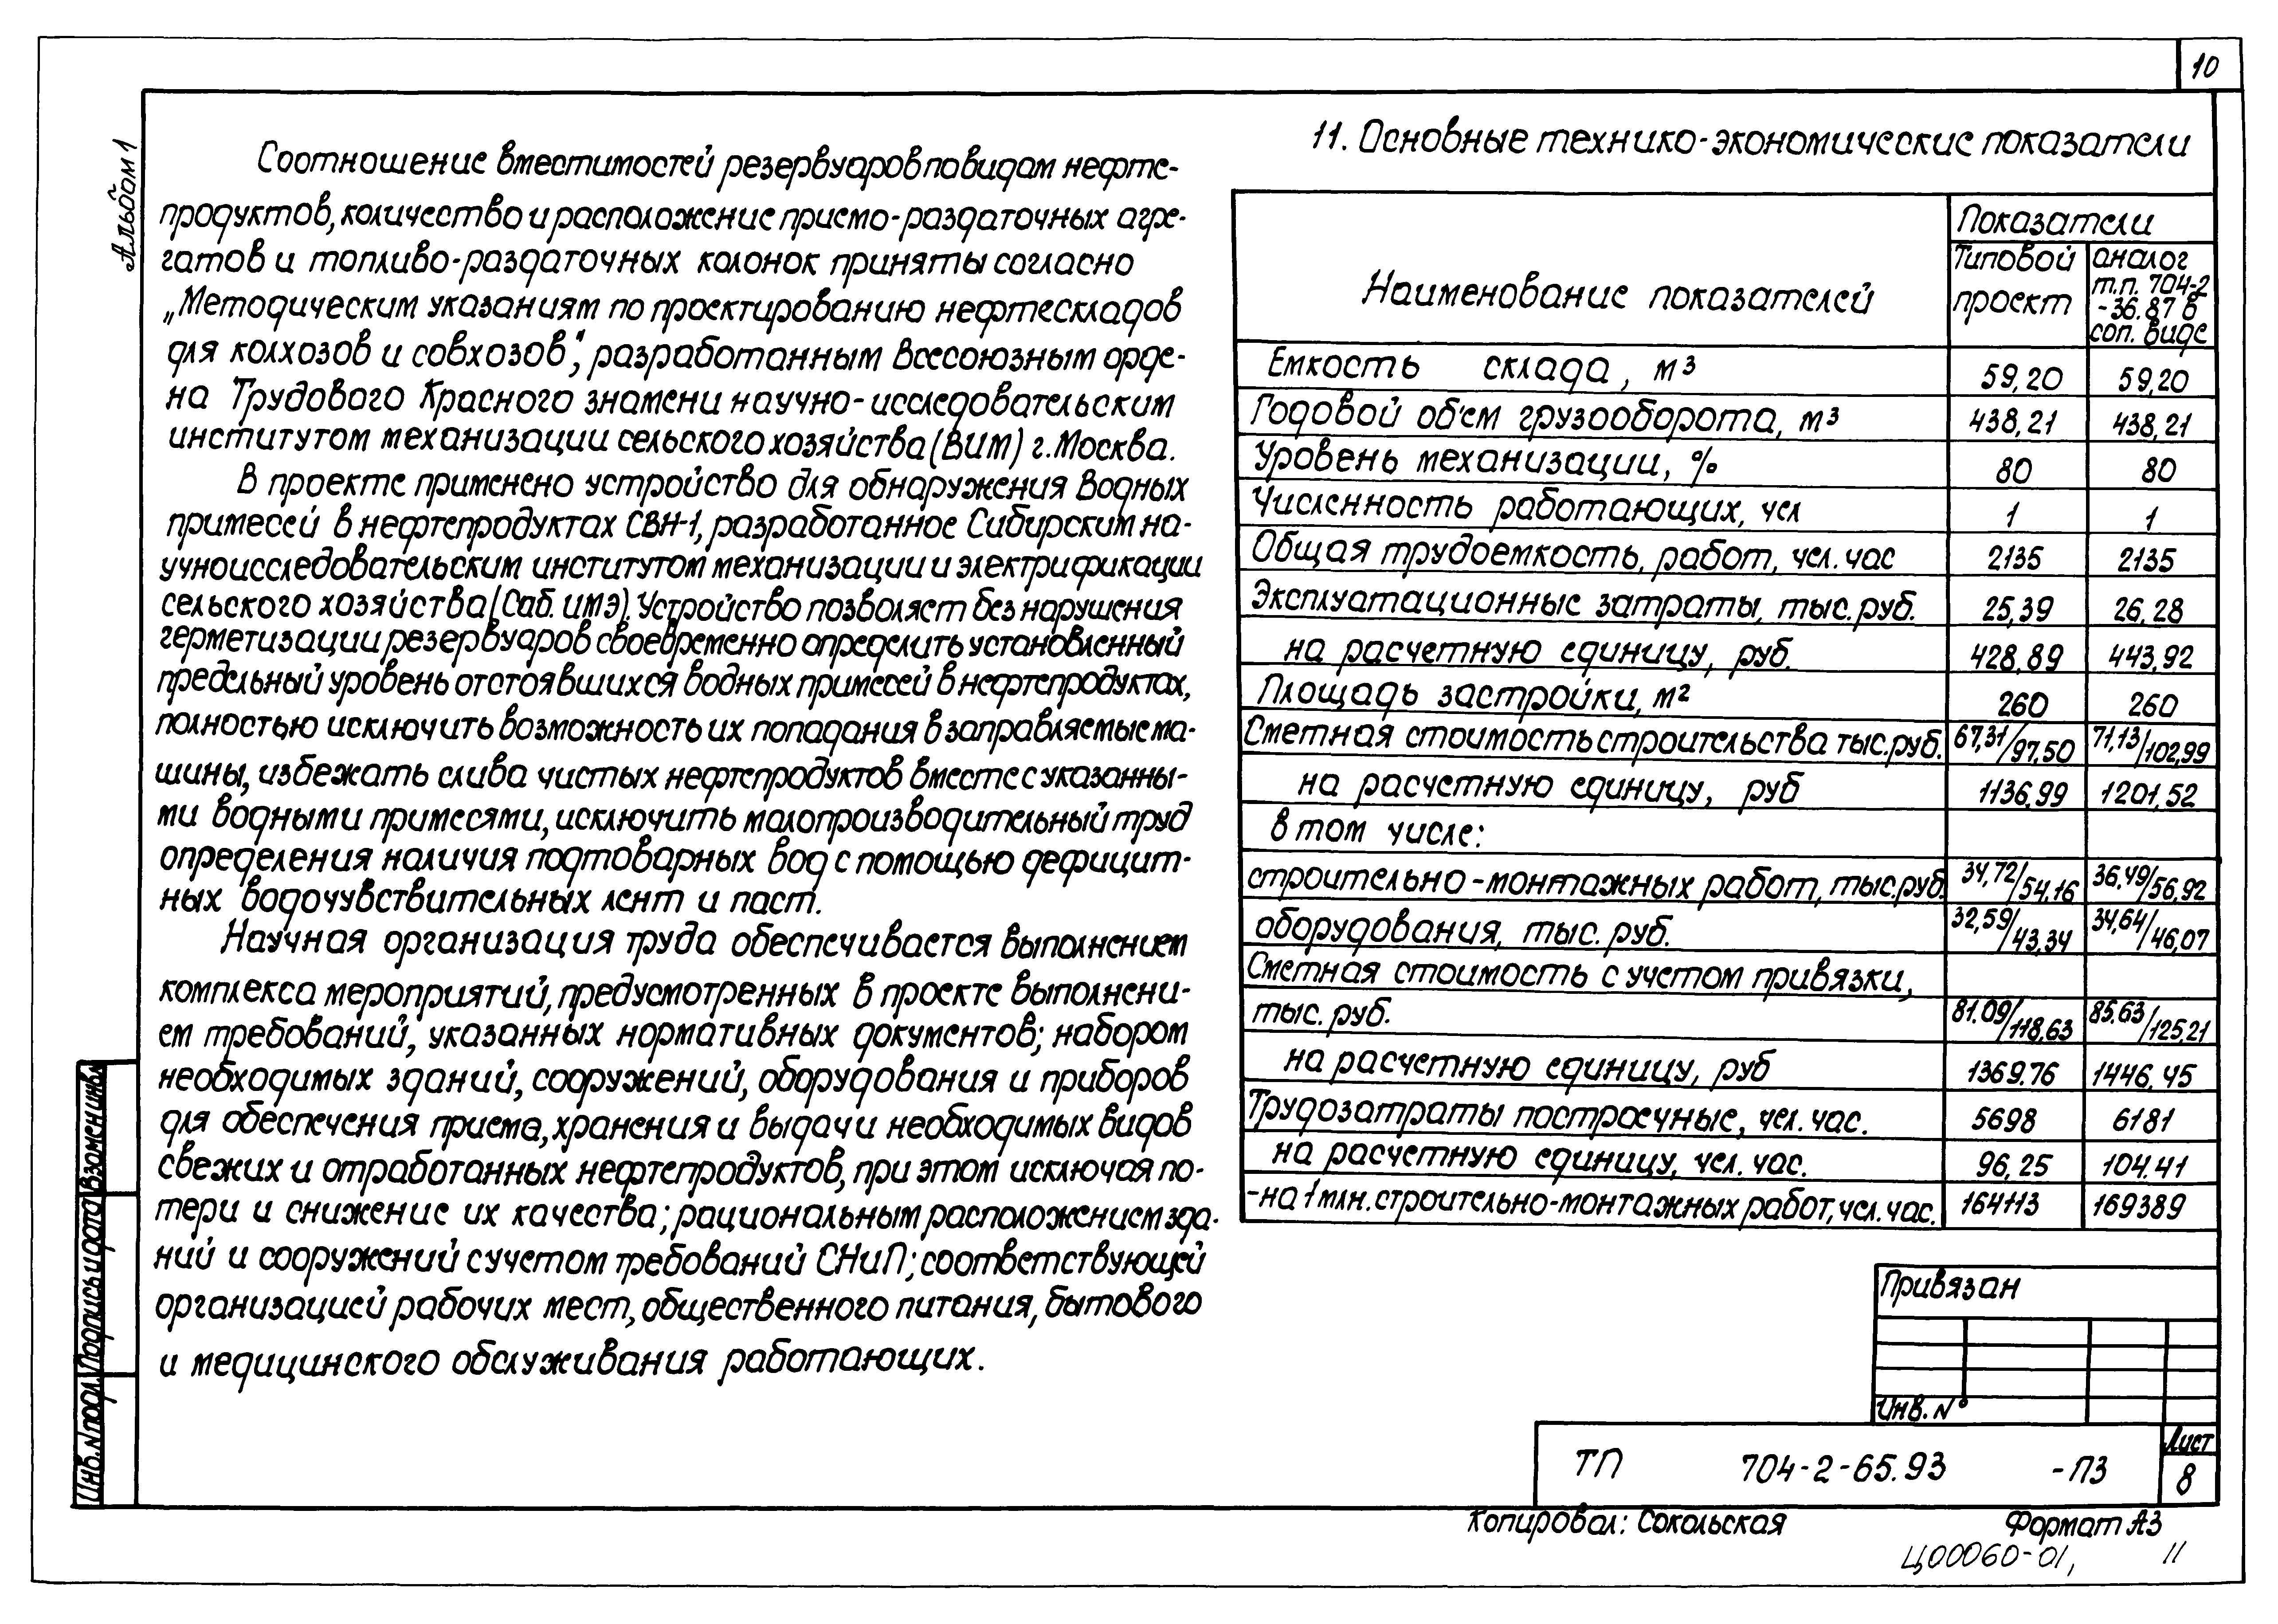 10
Альбом 1
Соотношение вместимостей резервуаров по видам нефте-
продуктов, количество и расположение приемо-раздаточных агре-
гатов и топливо-раздаточных колонок приняты согласно
„Методическим указаниям по проектированию нефтескладов
для колхозов и совхозов", разработанным Всесоюзным орде-
на Трудового Красного знамени научно-исследовательским
институтом механизации сельского хозяйства (ВИМ) г. Москва.
В проекте применено устройство для обнаружения водных
примесей в нефтепродуктах СВН-1, разработанное Сибирским на-
учноисследовательским институтом механизации и электрификации
сельского хозяйства (Саб. ИМЭ). Устройство позволяет без нарушения
герметизации резервуаров своевременно определить установленный
предельный уровень отстоявшихся водных примесей в нефтепродуктах,
полностью исключить возможность их попадания в заправляемые ма-
шины, избежать слива чистых нефтепродуктов вместе с указанны-
ми водными примесями, исключить малопроизводительный труд
определения наличия подтоварных вод с помощью дефицит-
ных водочувствительных лент и паст.
Научная организация труда обеспечивается выполнением
комплекса мероприятий, предусмотренных в проекте выполнени-
ем требований, указанных нормативных документов; набором
необходимых зданий, сооружений, оборудования и приборов
для обеспечения приема, хранения и выдачи необходимых видов
свежих и отработанных нефтепродуктов, при этом исключая по-
тери и снижение их качества; рациональным расположением зда-
ний и сооружений с учетом требований СНиП; соответствующей
организацией рабочих мест, общественного питания, бытового
и медицинского обслуживания работающих.
11. Основные технико-экономические показатели
Наименование показателей
Показатели
Типовой проект
аналог т.п. 704-2-36.87 в соп. виде
Емкость склада, м³ 59,20 59,20
Годовой объем грузооборота, м³ 438,21 438,21
Уровень механизации, % 80 80
Численность работающих, чел 1 1
Общая трудоемкость, работ, чел. час 2135 2135
Эксплуатационные затраты, тыс. руб. 25,39 26,28
на расчетную единицу, руб. 428,89 443,92
Площадь застройки, м² 260 260
Сметная стоимость строительства тыс. руб. 67,31/97,50 71,13/102,99
на расчетную единицу, руб 1136,99 1201,52
в том числе:
строительно-монтажных работ, тыс. руб. 34,72/54,16 36,49/56,92
оборудования, тыс. руб. 32,59/43,34 34,64/46,07
Сметная стоимость с учетом привязки,
тыс. руб. 81.09/118,63 85.63/125,21
на расчетную единицу, руб 1369.76 1446.45
Трудозатраты построечные, чел. час. 5698 6181
на расчетную единицу, чел. час. 96,25 104.41
-на 1 млн. строительно-монтажных работ, чел. час. 164113 169389
Привязан
Инв. N°
ТП 704-2-65.93 -ПЗ
Лист
8
Взамен инв.
Подпись и дата
Инв. N подл.
Копировал: Сокольская
Формат А3
Ц00060-01, 11